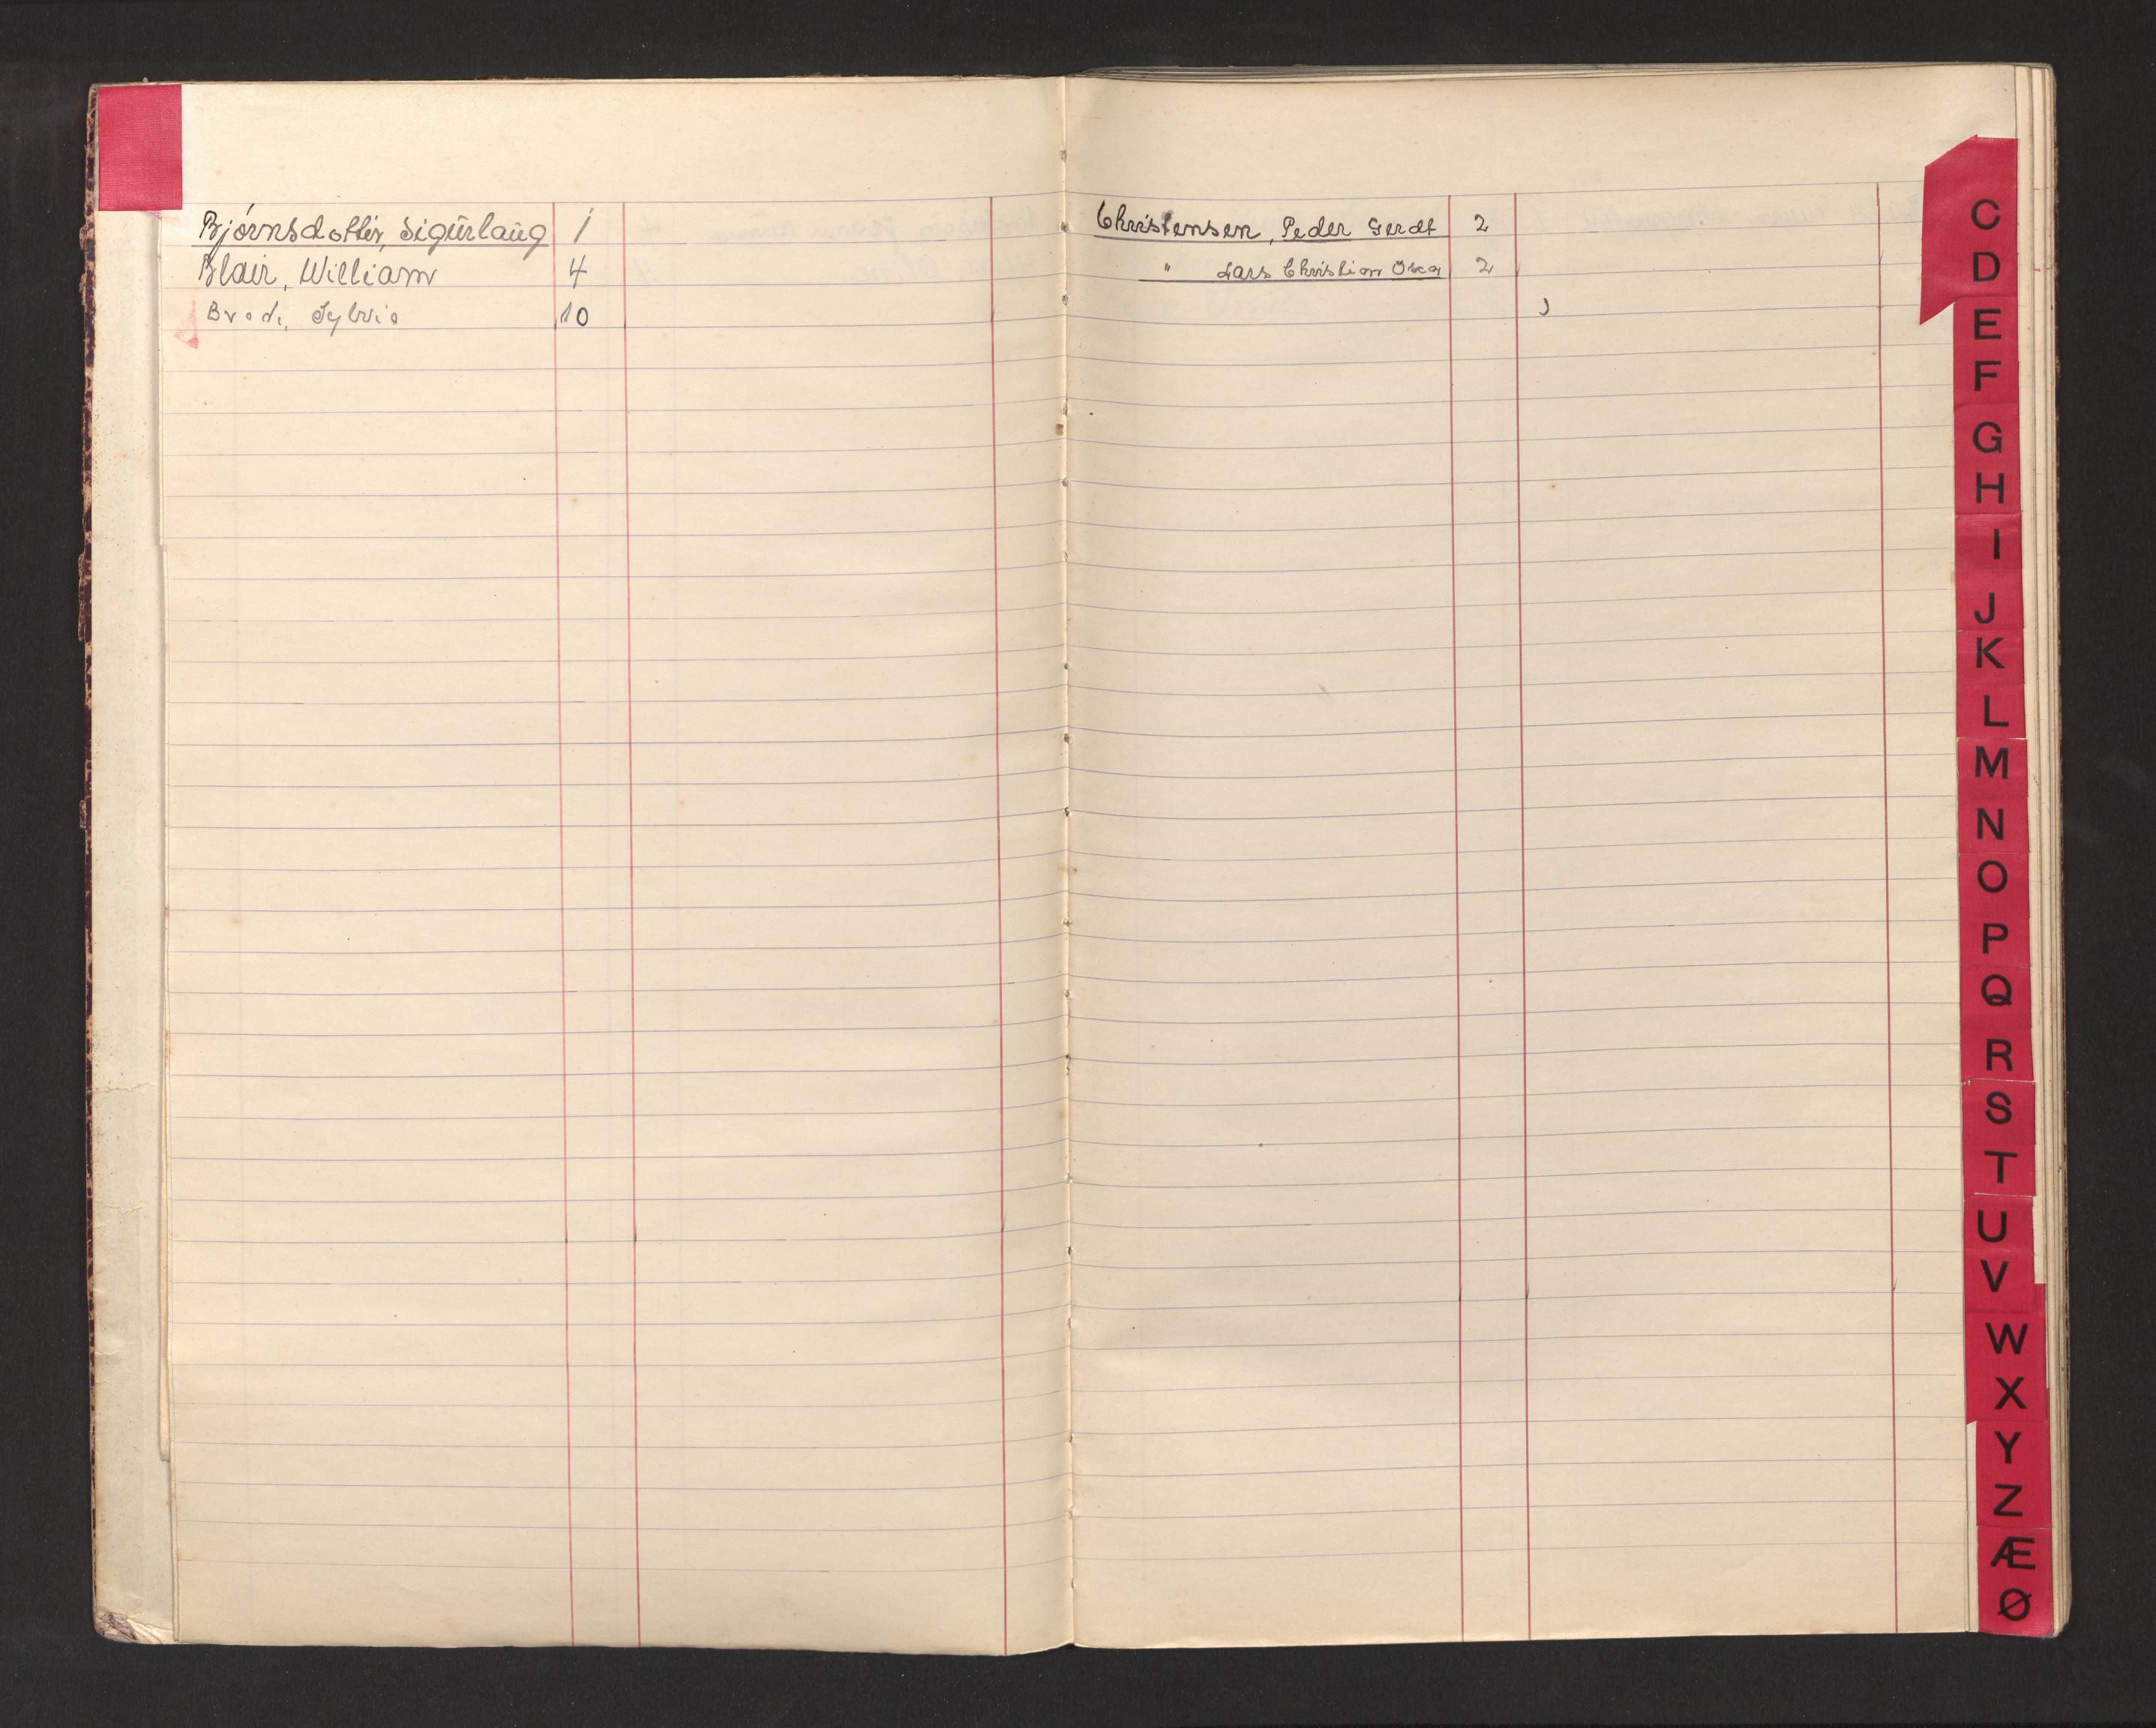 Bjórnsdottir, Sigürlaüg 1
Blair, William 4
Brodi, Sylvia 10
Christensen, Peder Gerdt 2
" Lars Christian Oscar 2
C
D
E
F
G
H
I
J
K
L
M
N
O
P
Q
R
S
T
U
V
W
X
Y
Z
Æ
Ø